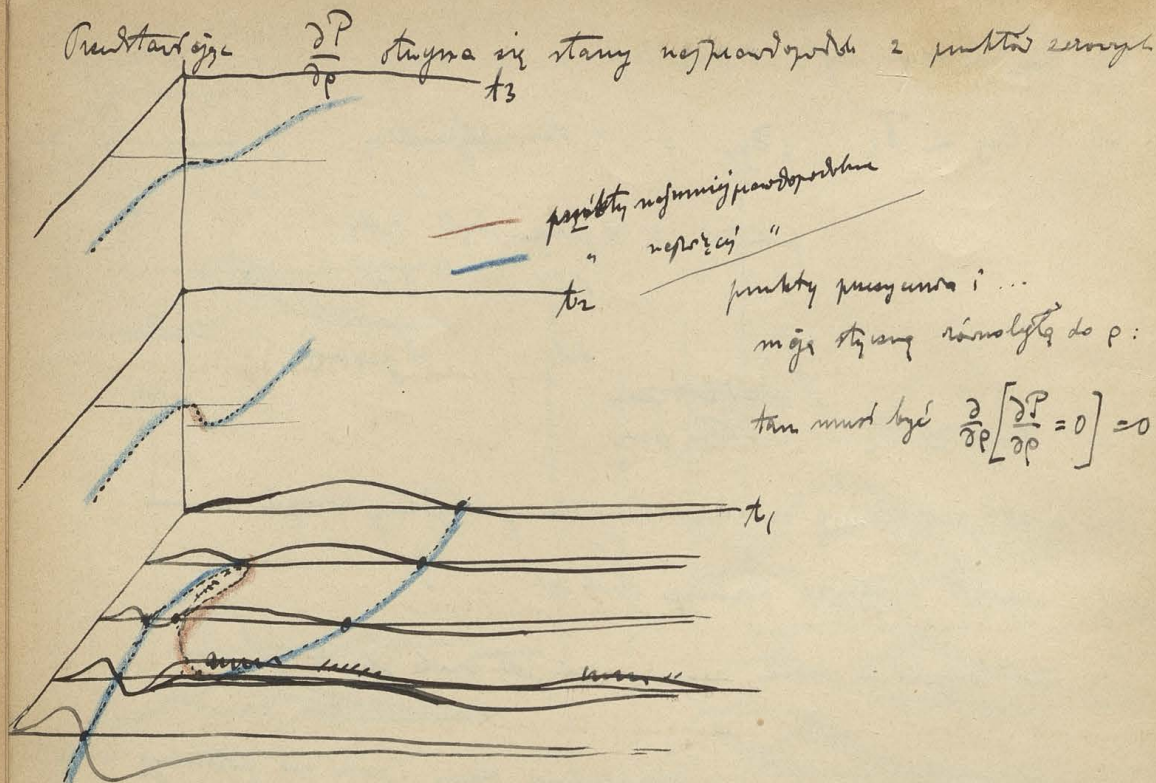 Przedstawiając ∂P/∂ρ otrzyma się stany najprawdopodob z punktów zerowych
t3
punkty najmniej prawdopodobne
" najwięcej "
t2
punkty przecięcia i ...
mają styczną równoległą do ρ:
tam musi być ∂/∂ρ [∂P/∂ρ = 0] = 0
t1